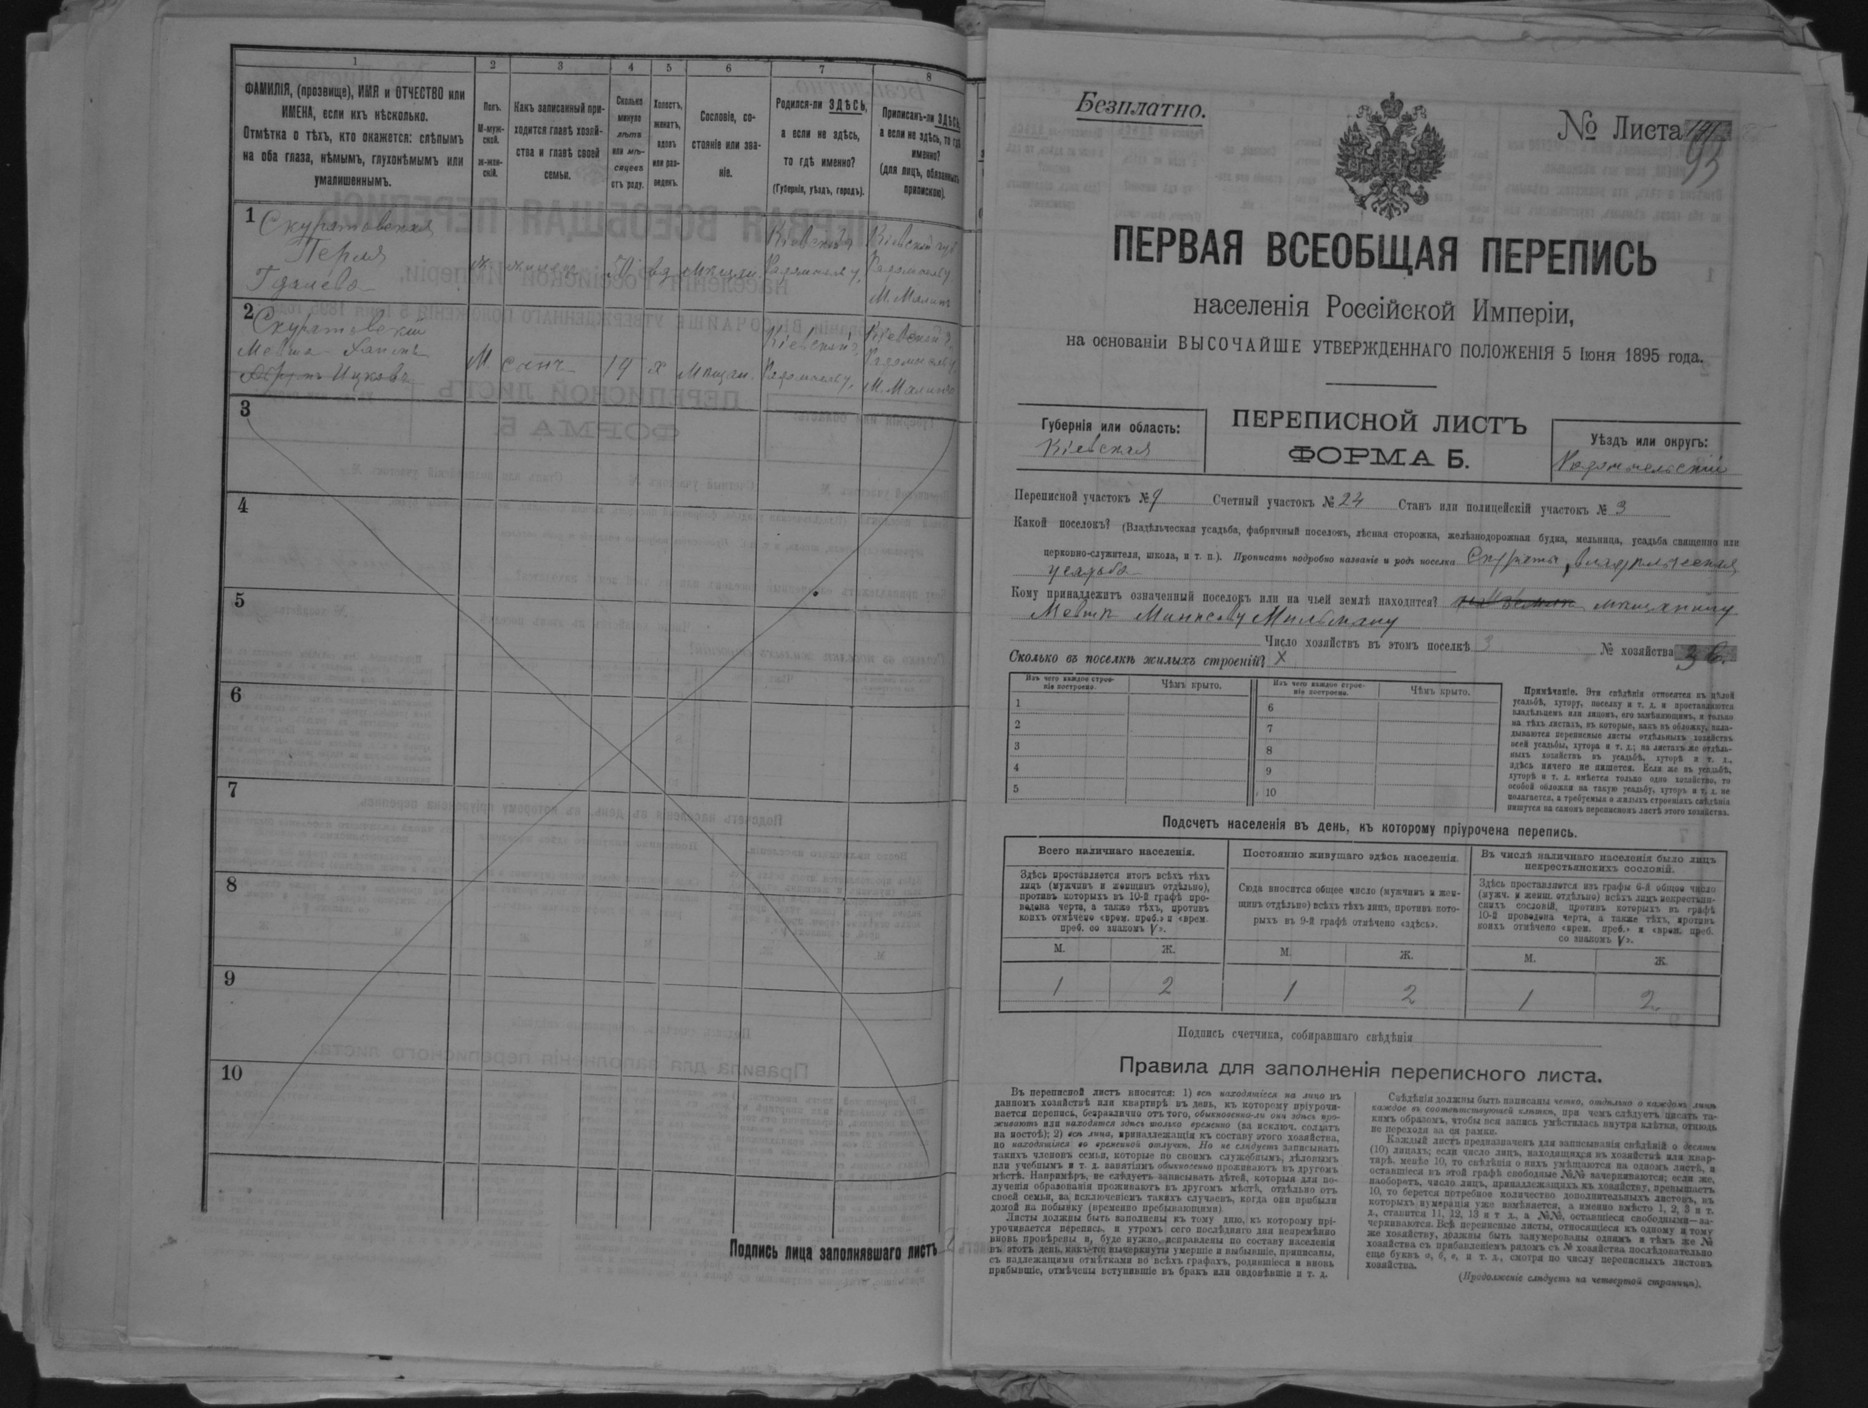 1
2
3
4
5
6
7
8
ФАМИЛІЯ, (прозвище), ИМЯ и ОТЧЕСТВО или
ИМЕНА, если ихъ нѣсколько.
Отмѣтка о тѣхъ, кто окажется: слѣпымъ
на оба глаза, нѣмымъ, глухонѣмымъ или
умалишеннымъ.
Полъ.
М-муж-
ской.
ж-жен-
скій.
Какъ записанный при-
ходится главѣ хозяй-
ства и главѣ своей
семьи.
Сколько
минуло
лѣтъ
или мѣ-
сяцевъ
отъ роду.
Холостъ,
женатъ,
вдовъ
или раз-
веденъ.
Сословіе, со-
стояніе или зва-
ніе.
Родился-ли ЗДѢСЬ,
а если не здѣсь,
то гдѣ именно?
(Губернія, уѣздъ, городъ).
Приписанъ-ли ЗДѢСЬ,
а если не здѣсь, то гдѣ
именно?
(для лицъ, обязанныхъ
припискою).
1
Скуратовская
Перля
Ж
50
вд
мѣщан.
Кіевской
Радомысл у.
Кіевской губ
Радомысл у
М. Малинъ
2
Скуратовскій
Мевша
Ицковъ
М
сынъ
19
х
мѣщан.
Кіевской г.
Радомысл у.
Кіевской г.
Радомысл у.
М. Малинъ
3
4
5
6
7
8
9
10
Подпись лица заполнявшаго листъ
Безплатно.
№ Листа
93
ПЕРВАЯ ВСЕОБЩАЯ ПЕРЕПИСЬ
населенія Россійской Имперіи,
на основаніи ВЫСОЧАЙШЕ УТВЕРЖДЕННАГО ПОЛОЖЕНІЯ 5 Іюня 1895 года.
Губернія или область:
Кіевская
ПЕРЕПИСНОЙ ЛИСТЪ
ФОРМА Б.
Уѣздъ или округъ:
Радомысльскій
Переписной участокъ № 9 Счетный участокъ № 24 Станъ или полицейскій участокъ № 3
Какой поселокъ? (Владѣльческая усадьба, фабричный поселокъ, лѣсная сторожка, желѣзнодорожная будка, мельница, усадьба священно или
церковно-служителя, школа, и т. п.). Прописать подробно названіе и родъ поселка Скураты, владѣльческая
усадьба
Кому принадлежитъ означенный поселокъ или на чьей землѣ находится? мѣщанину
Мевшѣ Мильману
Число хозяйствъ въ этомъ поселкѣ 3 № хозяйства 3
Сколько въ поселкѣ жилыхъ строеній? X
Изъ чего каждое строе-
ніе построено.
Чѣмъ крыто.
Изъ чего каждое строе-
ніе построено.
Чѣмъ крыто.
1
2
3
4
5
6
7
8
9
10
Примѣчаніе. Эти свѣдѣнія относятся къ цѣлой
усадьбѣ, хутору, поселку и т. д. и проставляются
владѣльцемъ или лицомъ, его замѣняющимъ, и только
на тѣхъ листахъ, въ которые, какъ въ обложку, вкла-
дываются переписные листы отдѣльныхъ хозяйствъ
всей усадьбы, хутора и т. д.; на листахъ же отдѣль-
ныхъ хозяйствъ въ усадьбѣ, хуторѣ и т. д.,
здѣсь ничего не пишется. Если же въ усадьбѣ,
хуторѣ и т. д. имѣется только одно хозяйство, то
особой обложки на такую усадьбу, хуторъ и т. д. не
полагается, а требуемыя о жилыхъ строеніяхъ свѣдѣнія
пишутся на самомъ переписномъ листѣ этого хозяйства.
Подсчетъ населенія въ день, къ которому пріурочена перепись.
Всего наличнаго населенія.
Здѣсь проставляется итогъ всѣхъ тѣхъ
лицъ (мужчинъ и женщинъ отдѣльно),
противъ которыхъ въ 10-й графѣ про-
ведена черта, а также тѣхъ, противъ
коихъ отмѣчено «врем. преб.» и «врем.
преб. со знакомъ V».
Постоянно живущаго здѣсь населенія.
Сюда вносится общее число (мужчинъ и жен-
щинъ отдѣльно) всѣхъ тѣхъ лицъ, противъ кото-
рыхъ въ 9-й графѣ отмѣчено «здѣсь».
Въ числѣ наличнаго населенія было лицъ
некрестьянскихъ сословій.
Здѣсь проставляется изъ графы 6-й общее число
(мужч. и женщ. отдѣльно) всѣхъ лицъ некрестьян-
скихъ сословій, противъ которыхъ въ графѣ
10-й проведена черта, а также тѣхъ, противъ
коихъ отмѣчено «врем. преб.» и «врем. преб.
со знакомъ V».
М.
Ж.
М.
Ж.
М.
Ж.
1
2
1
2
1
2
Подпись счетчика, собиравшаго свѣдѣнія
Правила для заполненія переписного листа.
Въ переписной листъ вносятся: 1) всѣ находящіеся на лицо въ
данномъ хозяйствѣ или квартирѣ въ день, къ которому пріурочи-
вается перепись, безразлично отъ того, обыкновенно-ли они здѣсь про-
живаютъ или находятся здѣсь только временно (за исключ. солдатъ
на постоѣ); 2) всѣ лица, принадлежащія къ составу этого хозяйства,
но находящіяся во временной отлучкѣ. Но не слѣдуетъ записывать
такихъ членовъ семьи, которые по своимъ служебнымъ, дѣловымъ
или учебнымъ и т. д. занятіямъ обыкновенно проживаютъ въ другомъ
мѣстѣ. Напримѣръ, не слѣдуетъ записывать дѣтей, которыя для по-
лученія образованія проживаютъ въ другомъ мѣстѣ, отдѣльно отъ
своей семьи, за исключеніемъ такихъ случаевъ, когда они прибыли
домой на побывку (временно пребывающими)
Листы должны быть заполнены къ тому дню, къ которому прі-
урочивается перепись, и утромъ сего послѣдняго дня непремѣнно
вновь провѣрены и, буде нужно, исправлены по составу населенія
въ этотъ день, какъ-то: вычеркнуты умершіе и выбывшіе, приписаны,
съ надлежащими отмѣтками во всѣхъ графахъ, родившіеся и вновь
прибывшіе, отмѣчены вступившіе въ бракъ или овдовѣвшіе и т. д.
Свѣдѣнія должны быть написаны четко, отдѣльно о каждомъ лицѣ
каждое въ соотвѣтствующей клѣткѣ, при чемъ слѣдуетъ писать та-
кимъ образомъ, чтобы вся запись умѣстилась внутри клѣтки, отнюдь
не переходя за ея рамки.
Каждый листъ предназначенъ для записыванія свѣдѣній о десяти
(10) лицахъ; если число лицъ, находящихся въ хозяйствѣ или квар-
тирѣ, менѣе 10, то свѣдѣнія о нихъ умѣщаются на одномъ листѣ, и
оставшіеся въ этой графѣ свободные №№ вачеркиваются; если же,
наоборотъ, число лицъ, принадлежащихъ къ хозяйству, превышаетъ
10, то берется потребное количество дополнительныхъ листовъ, въ
которыхъ нумерація уже измѣняется, а именно вмѣсто 1, 2, 3 и т.
д., ставится 11, 12, 13 и т. д., а №№, оставшіеся свободными—за-
черкиваются. Всѣ переписные листы, относящіеся къ одному и тому
же хозяйству, должны быть занумерованы однимъ и тѣмъ же №
хозяйства съ прибавленіемъ рядомъ съ № хозяйства послѣдовательно
еще буквъ а, б, в, и т. д., смотря по числу переписныхъ листовъ
хозяйства.
(Продолженіе слѣдуетъ на четвертой страницѣ).